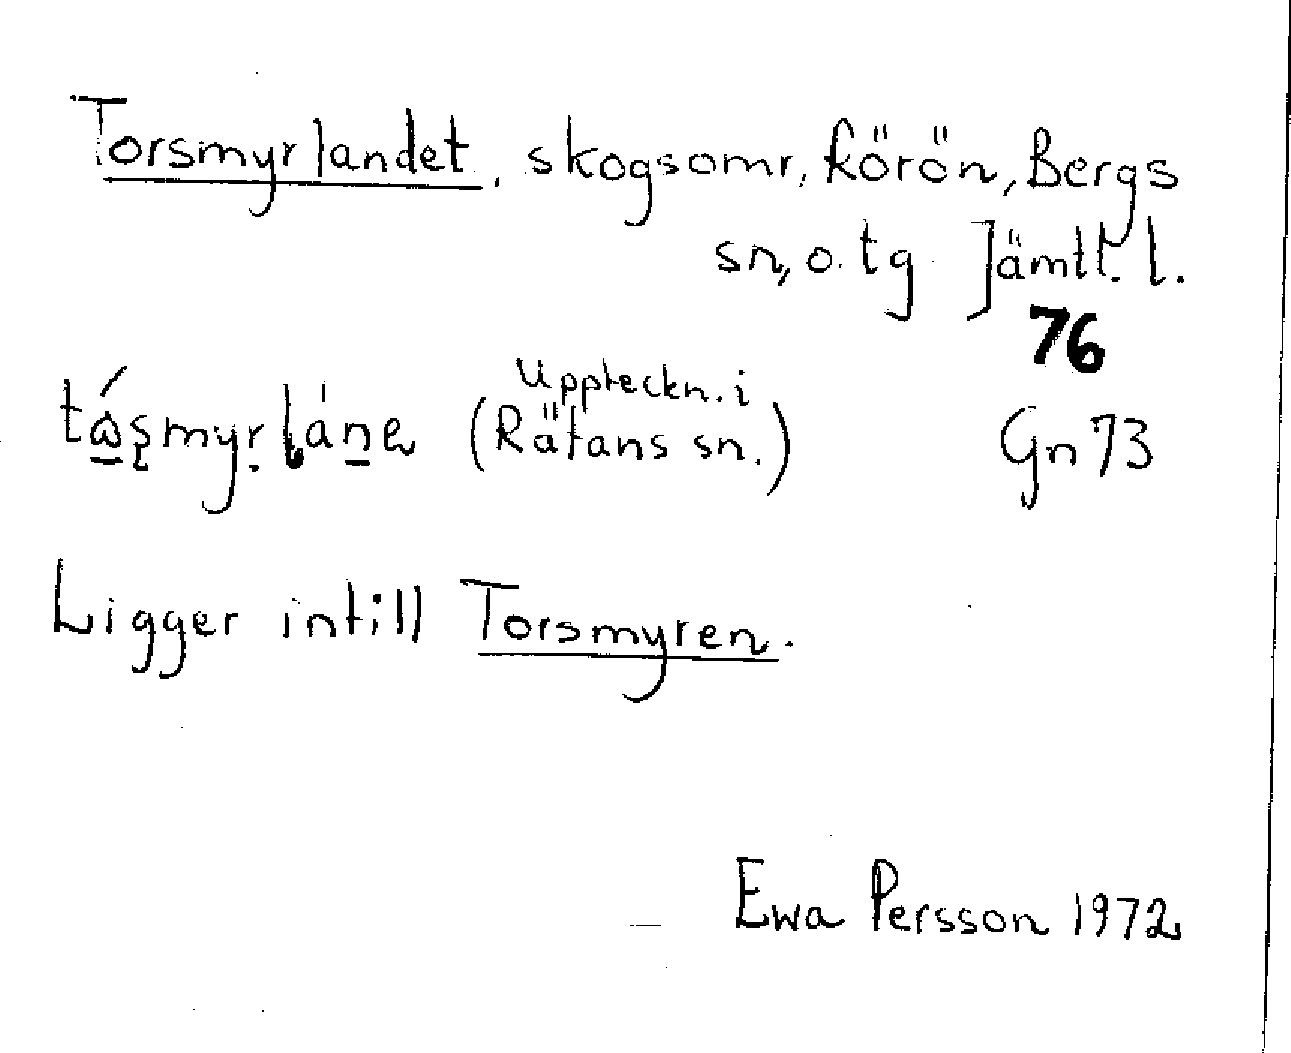 Torsmyrlandet, skogsomr, Körön, Bergs
sn, o. tg Jämtl. l.
76
Uppteckn. i
(Rätans sn.) Gn 73
Ligger intill Torsmyren.
Ewa Persson 1972